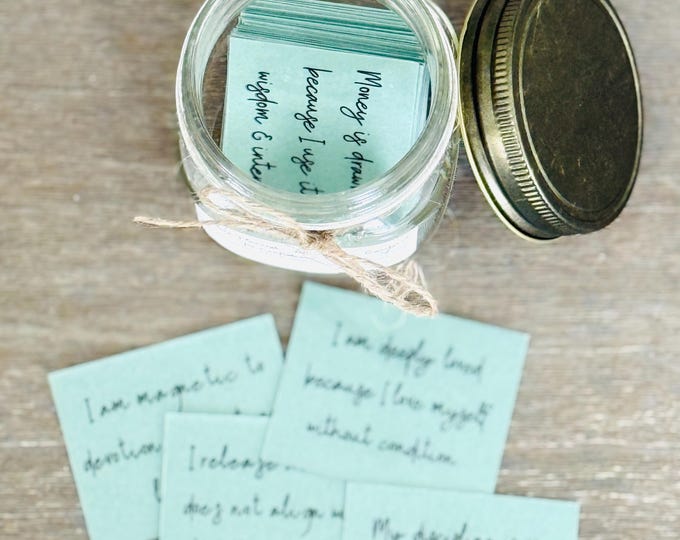 Money is
because I use it
wisdom & inte
I am magnetic to
devotion
I am deeply loved
because I love myself
without condition.
I release
does not align
My discipline